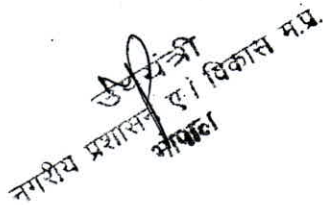 उपयंत्री
नगरीय प्रशासन एवं विकास म.प्र.
भोपाल